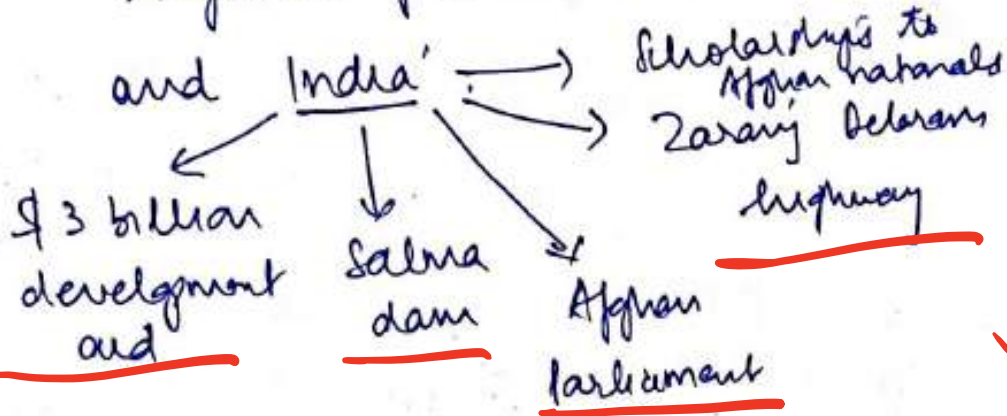 and India
Scholarships to
Afghan nationals
Zaranj Delaram
highway
$ 3 billion
development
aid
Salma
dam
Afghan
parliament